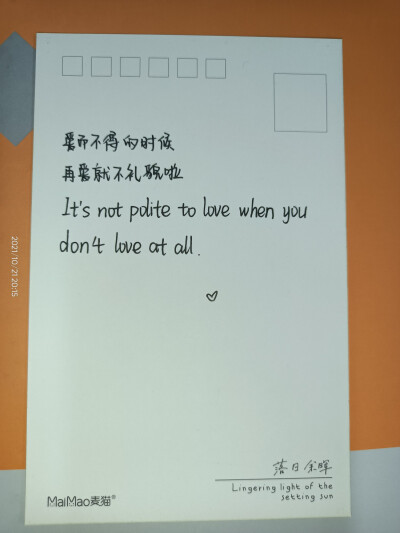 爱而不得的时候
再爱就不礼貌啦
It's not polite to love when you
don't love at all.
落日余晖
Lingering light of the
setting sun
MaiMao麦猫®
2021.10.21 20:15